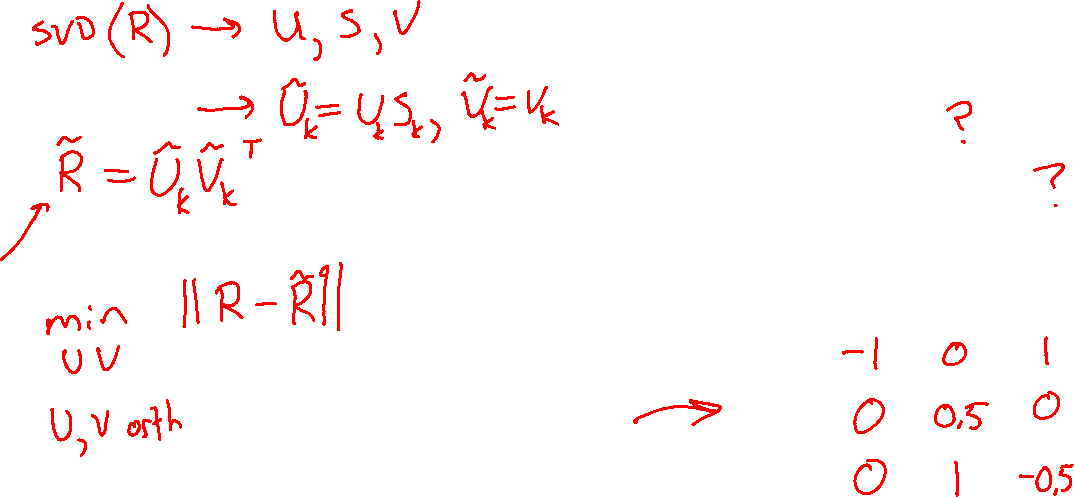 SVD(R) → U, S, V
→ Ũ_k = U_k S_k, Ṽ_k = V_k
?
R̃ = Ũ_k Ṽ_k^T
?
min ||R - R̃||
U V
U, V orth
-1 0 1
→ 0 0.5 0
0 1 -0.5